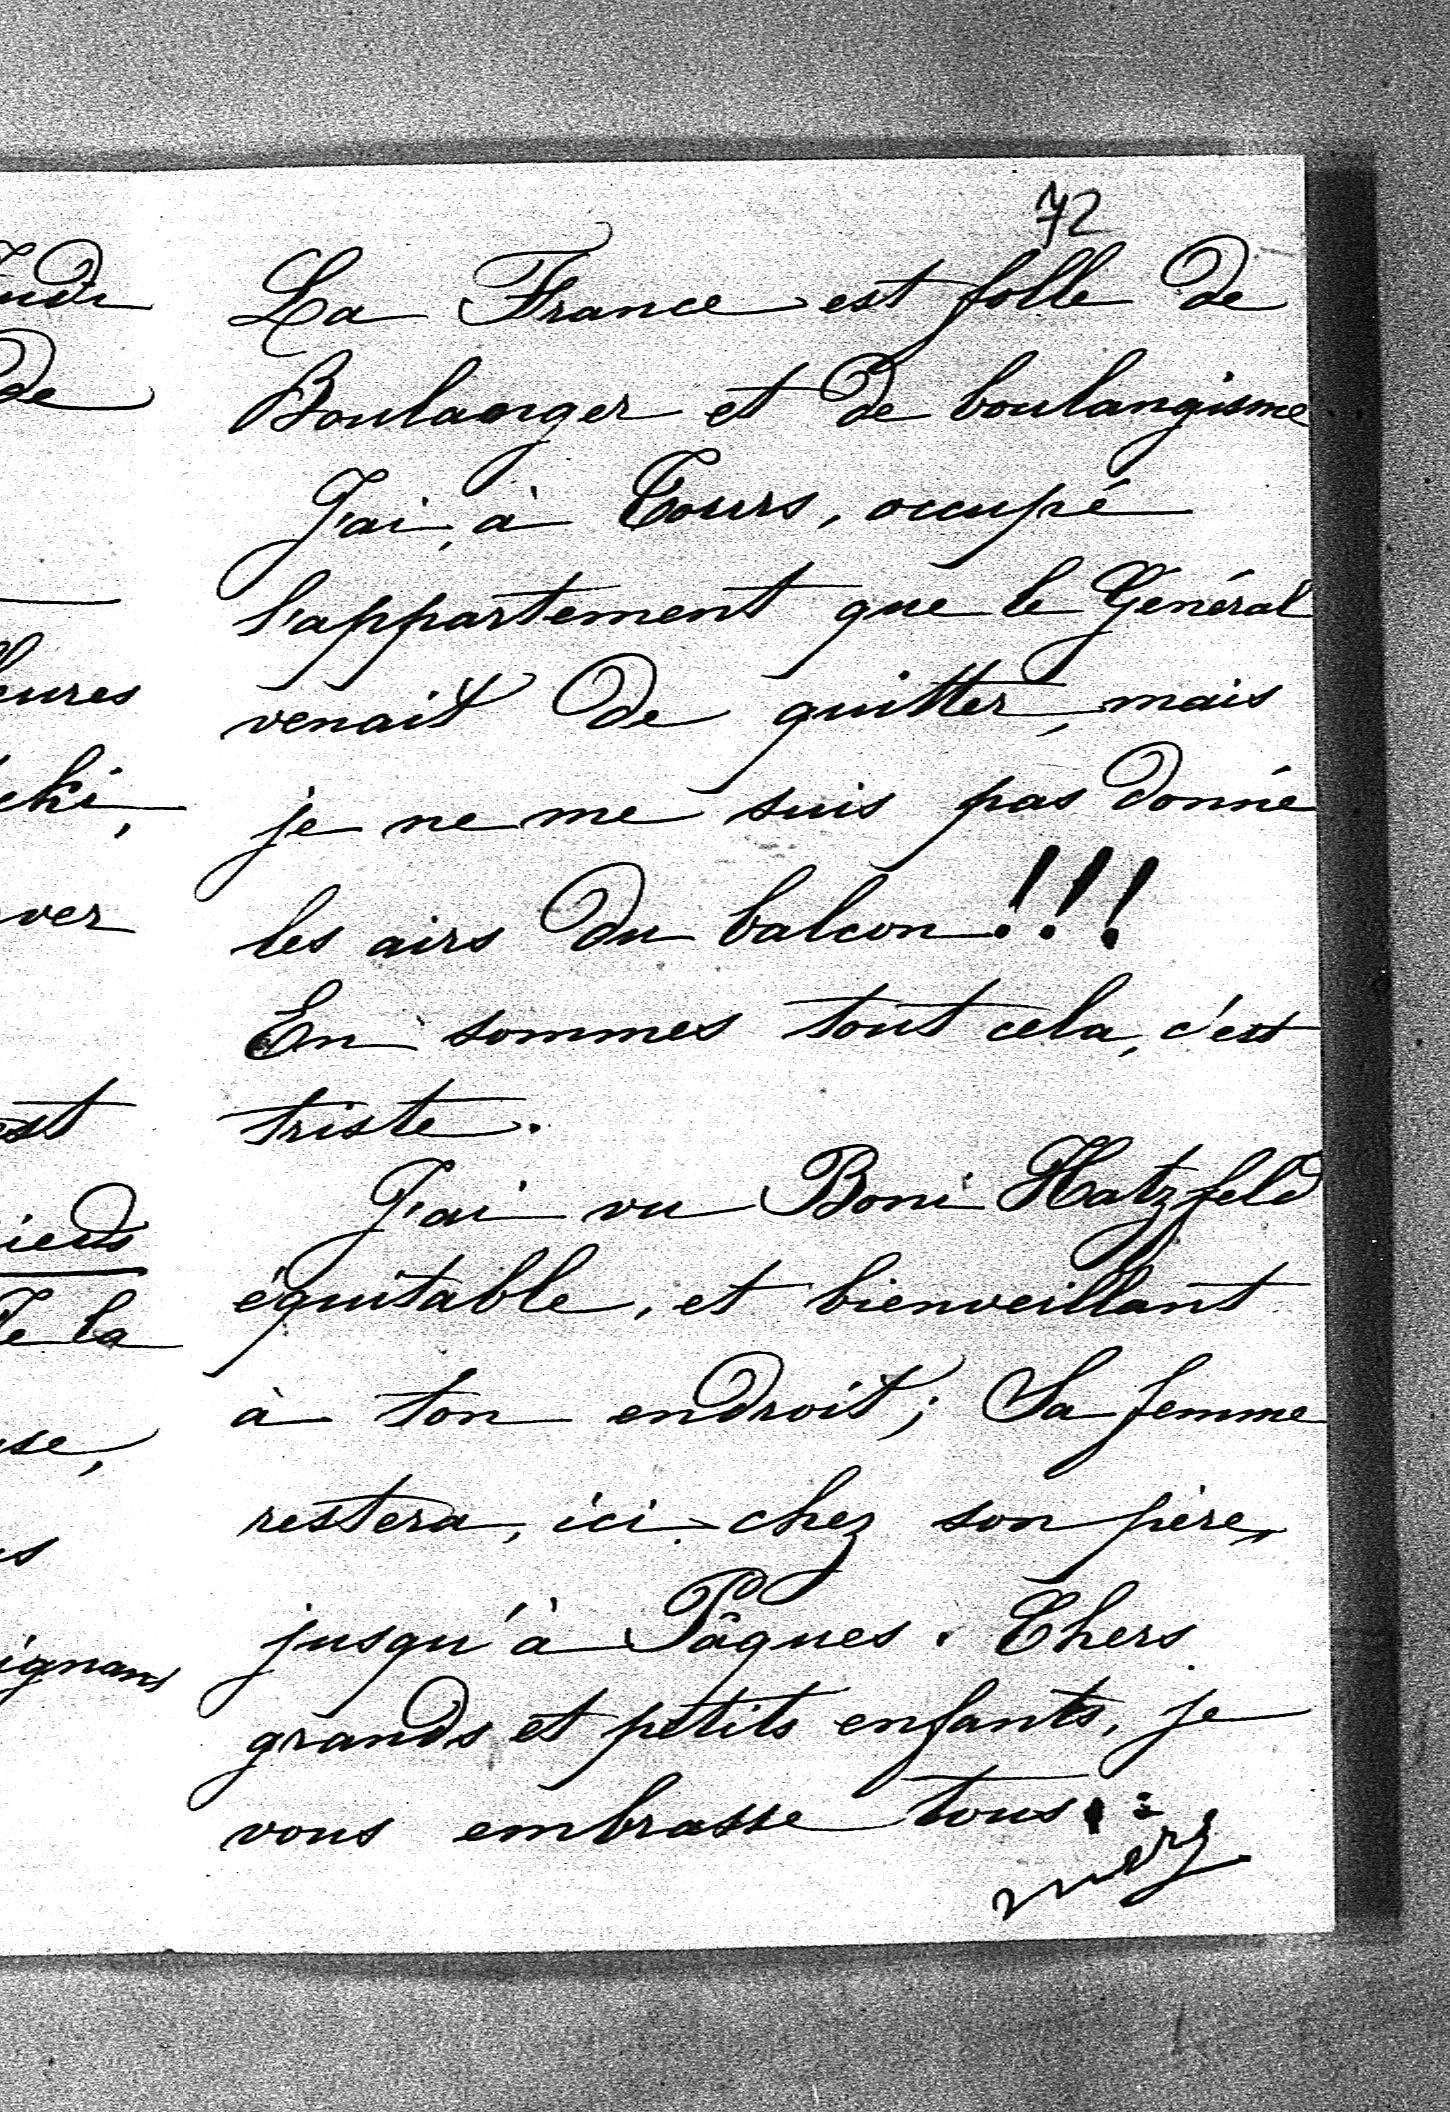 72
La France est folle de
Boulanger et de boulangisme
J'ai, à Tours, occupé
l'appartement que le Général
venait de quitter, mais
je ne me suis pas donné
les airs du balcon !!!
En sommes tout cela, c'est
triste.
J'ai vu Boni Hatzfeld
équitable, et bienveillant
à ton endroit; Sa femme
restera, ici chez son père,
jusqu'à Pâques. Chers
grands et petits enfants, je
vous embrasse tous :
de
ver
est
ieds
Je la